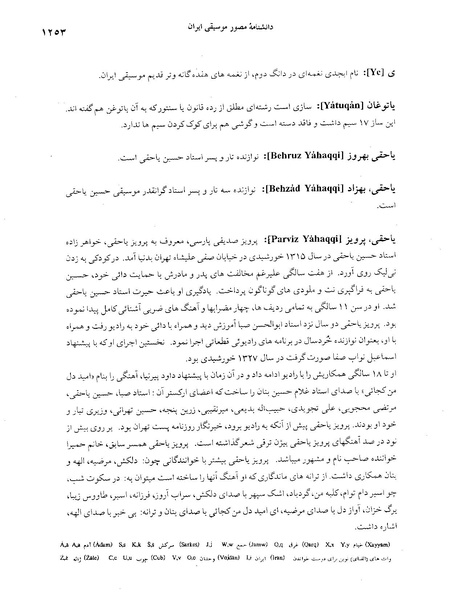 دانشنامهٔ مصور موسیقی ایران
۱۲۵۳
ی [Ye]: نام ابجدی نغمه‌ای در دانگ دوم، از نغمه های هفده گانه وتر قدیم موسیقی ایران.
یاتوغان [Yátuqán]: سازی است رشته‌ای مطلق از رده قانون یا سنتور که به آن یاتوغن هم گفته اند.
این ساز ۱۷ سیم داشت و فاقد دسته است و گوشی هم برای کوک کردن سیم ها ندارد.
یاحقی بهروز [Behruz Yáhaqqi]: نوازنده تار و پسر استاد حسین یاحقی است.
یاحقی، بهزاد [Behzád Yáhaqqi]: نوازنده سه تار و پسر استاد گرانقدر موسیقی حسین یاحقی
است.
یاحقی، پرویز [Parviz Yáhaqqi]: پرویز صدیقی پارسی، معروف به پرویز یاحقی، خواهر زاده
استاد حسین یاحقی در سال ۱۳۱۵ خورشیدی در خیابان صفی علیشاه تهران بدنیا آمد. در کودکی به زدن
نی‌لبک روی آورد. از هفت سالگی علیرغم مخالفت های پدر و مادرش با حمایت دائی خود، حسین
یاحقی به فراگیری نت و ملودی های گوناگون پرداخت. یادگیری او باعث حیرت استاد حسین یاحقی
شد. او در سن ۱۱ سالگی به تمامی ردیف ها، چهار مضرابها و آهنگ های ضربی آشنائی کامل پیدا نموده
بود. پرویز یاحقی دو سال نزد استاد ابوالحسن صبا آموزش دید و همراه با دائی خود به رادیو رفت و همراه
با او، بعنوان نوازنده خردسال در برنامه های رادیوئی قطعاتی اجرا نمود. نخستین اجرای او که با پیشنهاد
اسماعیل نواب صفا صورت گرفت در سال ۱۳۲۷ خورشیدی بود.
او تا ۱۸ سالگی همکاریش را با رادیو ادامه داد و در آن زمان با پیشنهاد داود پیرنیا، آهنگی را بنام «امید دل
من کجائی» با صدای استاد غلام حسین بنان را ساخت که اعضای ارکستر آن : استاد صبا، حسین یاحقی،
مرتضی محجوبی، علی تجویدی، حبیب‌اله بدیعی، میرنقیبی، زرین پنجه، حسین تهرانی، وزیری تبار و
خود او بودند. پرویز یاحقی پیش از آنکه به رادیو برود، خبرنگار روزنامه پست تهران بود. بر روی بیش از
نود در صد آهنگهای پرویز یاحقی بیژن ترقی شعر گذاشته است. پرویز یاحقی همسر سابق، خانم حمیرا
خواننده صاحب نام و مشهور میباشد. پرویز یاحقی بیشتر با خوانندگانی چون: دلکش، مرضیه، الهه و
بنان همکاری داشت. از ترانه های ماندگاری که او آهنگ آنها را ساخته است میتوان به: در سکوت شب،
چو اسیر دام توام، کلبه من، گردباد، اشک سپهر با صدای دلکش، سراب آرزو، فرزانه، اسیر، طاووس زیبا،
برگ خزان، آواز دل با صدای مرضیه، ای امید دل من کجائی با صدای بنان و ترانه: بی خبر با صدای الهه،
اشاره داشت.
A,a Á,á (Ádam) آدم S,s K,k Š,š (Sarkeš) سرکش J,j W,w (Jamw) جمع O,q (Qarq) غرق X,x Y,y خیام (Xayyám)
Z,ž (Žále) ژاله C,c U,u (Cub) چوب V,v O,o (Vojdán) وجدان I,i ایران (Irán) وات های (الفبای) نوین برای درست خواندن